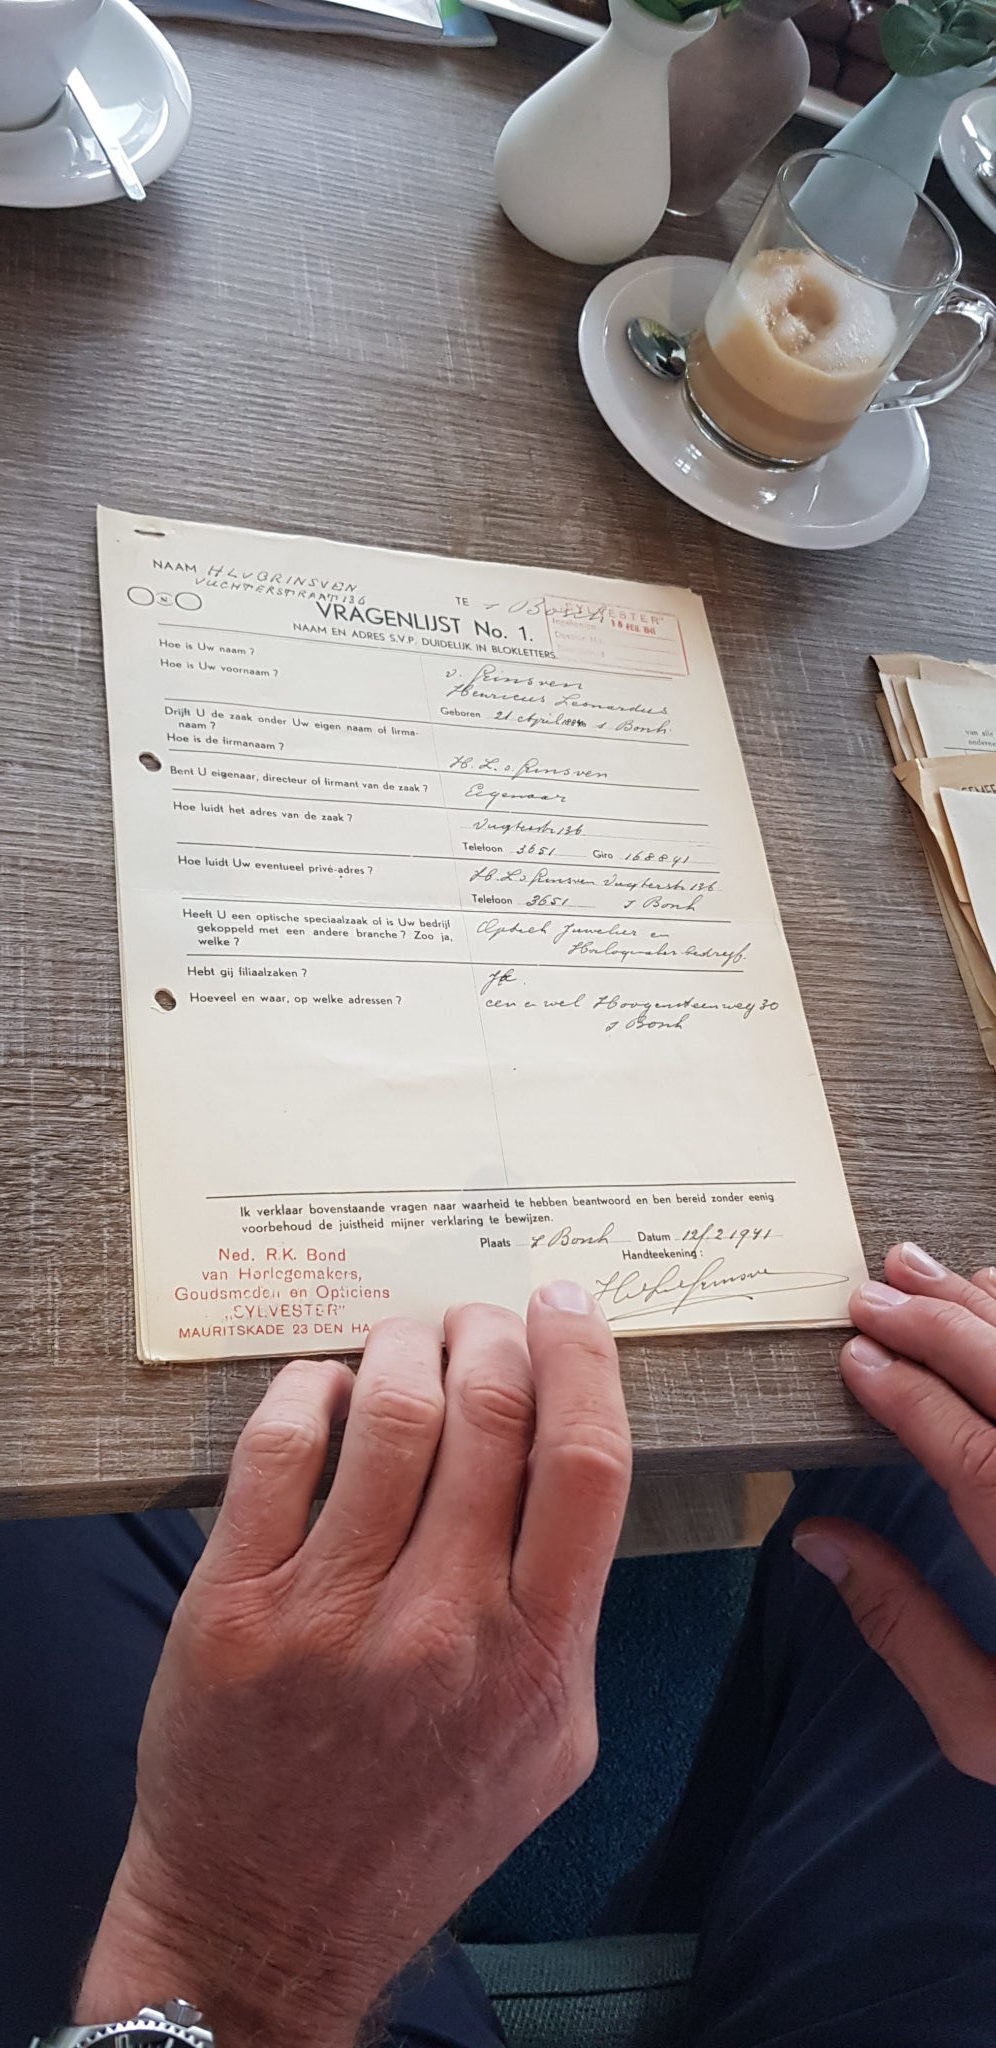 NAAM HLVGRINSVEN
VUCHTERSTRAAT 136
TE s Bosch
"SYLVESTER"
18 FEB. 1941
VRAGENLIJST No. 1.
NAAM EN ADRES S.V.P. DUIDELIJK IN BLOKLETTERS
Hoe is Uw naam ? v. Grinsven
Hoe is Uw voornaam ? Henricus Leonardus
Geboren 21 April s Bosch
Drijft U de zaak onder Uw eigen naam of firma-
naam ?
Hoe is de firmanaam ? H. L. v Grinsven
Bent U eigenaar, directeur of firmant van de zaak ? Eigenaar
Hoe luidt het adres van de zaak ? Vughterstr 136
Telefoon 3651 Giro 168841
Hoe luidt Uw eventueel privé-adres ? H. L. v Grinsven Vughterstr 136
Telefoon 3651 s Bosch
Heeft U een optische speciaalzaak of is Uw bedrijf
gekoppeld met een andere branche ? Zoo ja,
welke ?
Optiek Juwelier en
Horlogemaker bedrijf.
Hebt gij filiaalzaken ? Ja.
Hoeveel en waar, op welke adressen ? een en wel 30
s Bosch
Ik verklaar bovenstaande vragen naar waarheid te hebben beantwoord en ben bereid zonder eenig
voorbehoud de juistheid mijner verklaring te bewijzen.
Plaats s Bosch Datum 12/2 1941
Handteekening :
Ned. R.K. Bond
van Horlogemakers,
Goudsmeden en Opticiens
"SYLVESTER"
MAURITSKADE 23 DEN HA
van alle